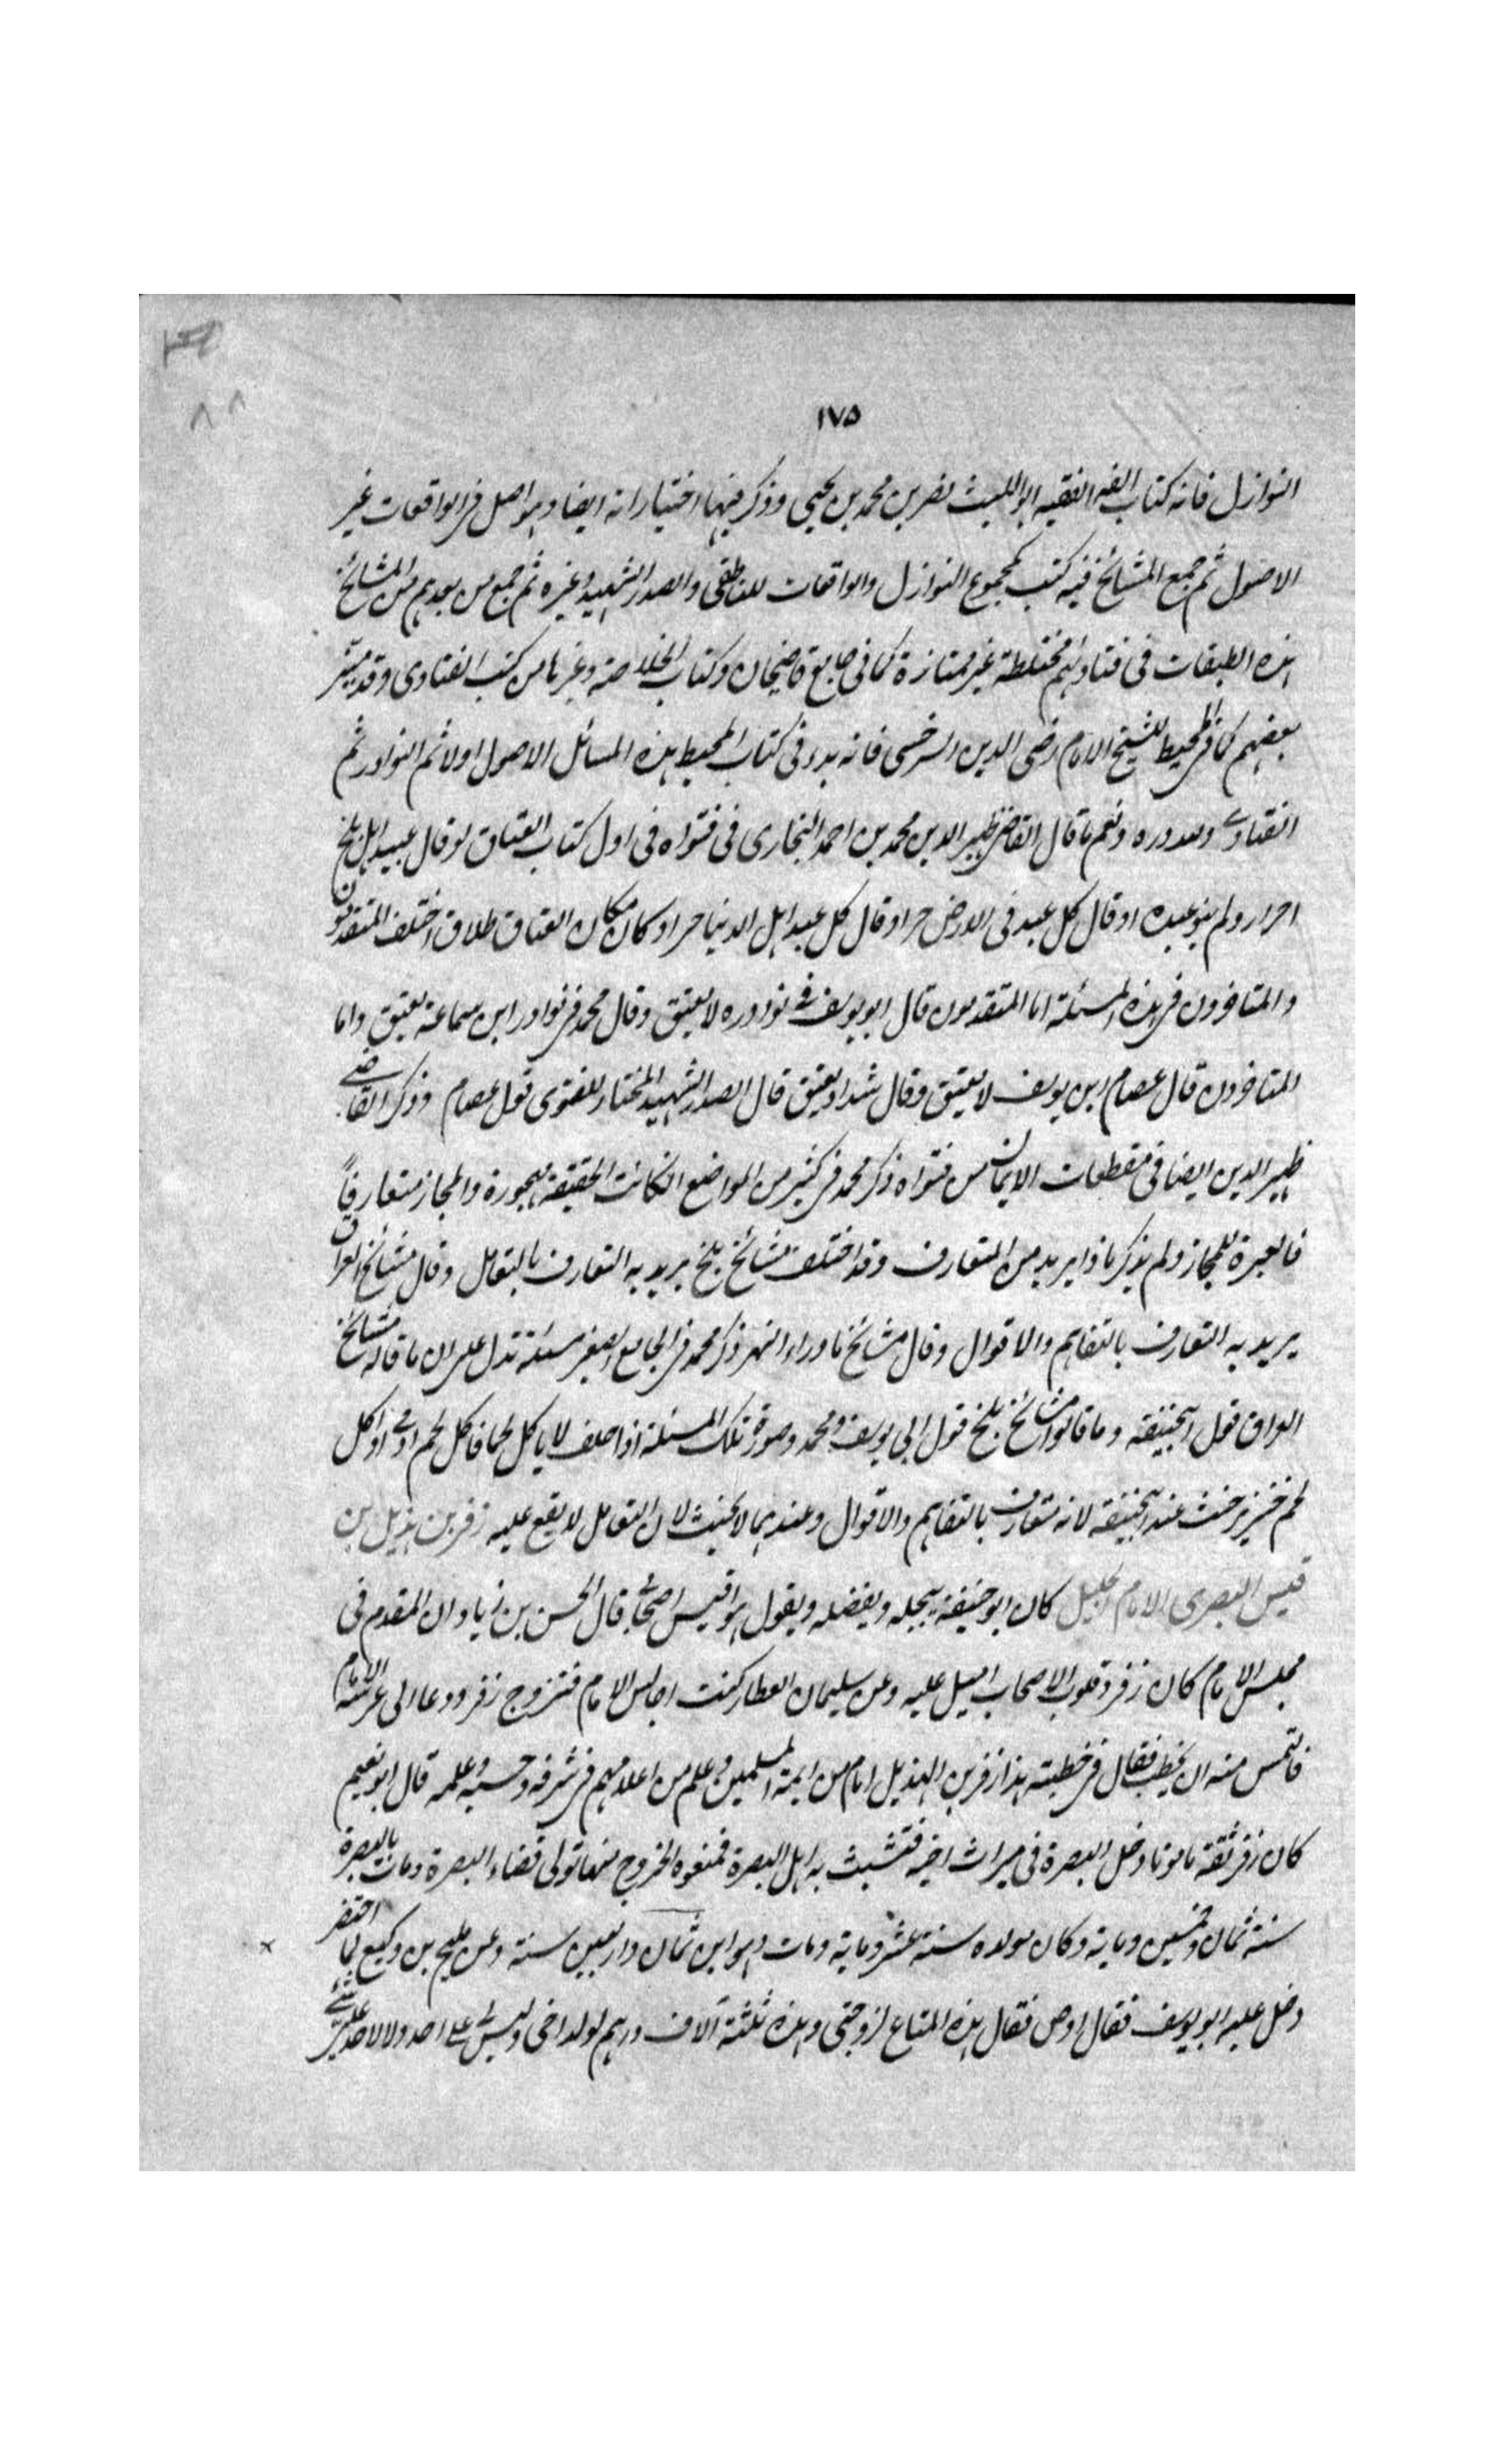 ١٧٥
النوازل فانه كتاب الفه الفقيه ابو الليث نصر بن محمد بن يحيى وذكر فيها اختياراته ايضا وهو اصل فى الواقعات غير
الاصول ثم جمع المشائخ فيه كتب كمجموع النوازل والواقعات للناطقى والصدر الشهيد وغيره ثم جمع من بعدهم من المشائخ
هذه الطبقات فى فتاواهم مختلطة غير ممتازة كما فى جامع قاضيخان وكتاب الخلاصة وغيرها من كتب الفتاوى وقد ميّز
بعضهم كما فى المحيط للشيخ الامام رضى الدين السرخسى فانه بدء فى كتاب المحيط بهذه المسائل الاصول اولا ثم النوادر ثم
الفتاوى ولله دره ونعم ما قال القاضى ظهير الدين محمد بن احمد البخارى فى فتواه فى اول كتاب العتاق لو قال عبيد اهل بلخ
احرار ولم ينو عبده او قال كل عبد فى الارض حر او قال كل عبد اهل الدنيا حر او كان مكان العتاق طلاق اختلف المتقدمون
والمتاخرون فى هذه المسئلة اما المتقدمون قال ابو يوسف فى نوادره لا يعتق وقال محمد فى نوادر ابن سماعة يعتق واما
المتاخرون قال عصام ابن يوسف لا يعتق وقال شداد يعتق قال الصدر الشهيد المختار للفتوى قول عصام وذكر القاضى
ظهير الدين ايضا فى مقطعات الايمان من فتواه ذكر محمد فى كثير من المواضع انكانت الحقيقة مهجورة والمجاز متعارفاً
فالعبرة للمجاز ولم يذكر ماذا يريد من المتعارف وقد اختلف مشائخ بلخ يريد به التعارف بالتعامل وقال مشائخ العراق
يريد به التعارف بالتفاهم والاقوال وقال مشائخ ماوراء النهر ذكر محمد فى الجامع الصغير مسئلة تدل على ان ما قاله مشائخ
العراق قول ابيحنيفة وما قالوا مشائخ بلخ قول ابى يوسف ومحمد وصورة تلك المسئلة اذا حلف لا ياكل لحما فاكل لحم ادمى او اكل
لحم خنزير حنث عند ابيحنيفة لانه متعارف بالتفاهم والاقوال وعندهما لا يحنث لان التعامل لا يقع عليه زفر بن هذيل بن
قيس البصرى الامام الجليل كان ابو حنيفة يبجله ويفضله ويقول هو اقيس اصحابى قال الحسن بن زياد ان المقدم فى
مجلس الامام كان زفر وقلوب الاصحاب اميل عليه وعن سليمان العطار كنت اجالس الامام فتزوج زفر ودعا الى عرسه الامام
فالتمس منه ان يخطب فقال فى خطبته هذا زفر بن الهذيل امام من ايمة المسلمين وعلم من اعلامهم فى شرفه وحسبه وعلمه قال ابو نعيم
كان زفر ثقة مامونا دخل البصرة فى ميراث اخيه فتشبث به اهل البصرة فمنعوه الخروج منها تولى قضاء البصرة ومات بالبصرة
سنة ثمان وخمسين وماية وكان مولده سنة عشر وماية ومات وهو ابن ثمان واربعين سنة وعن مليح بن وكيع لما احتضر
دخل عليه ابو يوسف فقال اوص فقال هذه المتاع لزوجتى وهذه ثلثة آلاف درهم لولد اخى وليس لى على احد ولا لاحد على شىء